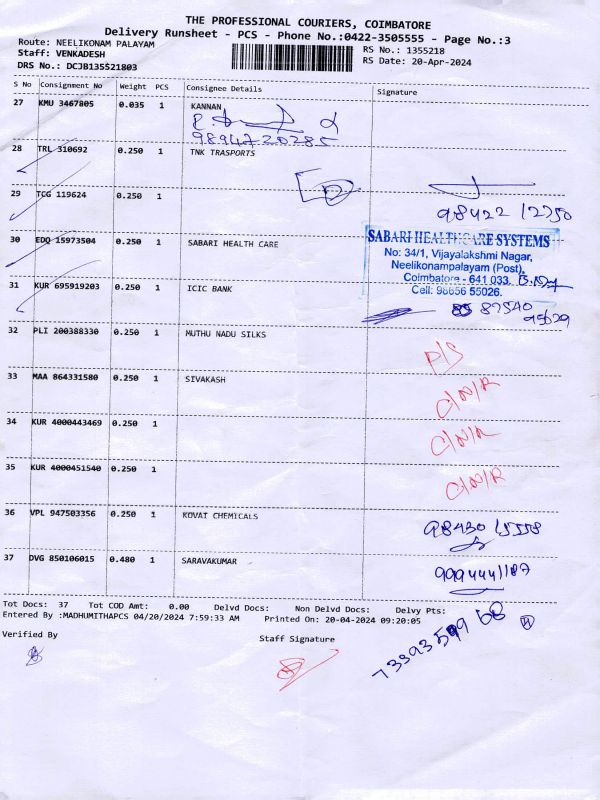 THE PROFESSIONAL COURIERS, COIMBATORE
Delivery Runsheet - PCS - Phone No.:0422-3505555 - Page No.:3
Route: NEELIKONAM PALAYAM
RS No.: 1355218
Staff: VENKADESH
RS Date: 20-Apr-2024
DRS No.: DCJB135521803
S No Consignment No Weight PCS Consignee Details Signature
27 KMU 3467805 0.035 1 KANNAN
9894720285
28 TRL 310692 0.250 1 TNK TRASPORTS
29 TCG 119624 0.250 1
98422 12750
30 EDQ 15973504 0.250 1 SABARI HEALTH CARE
SABARI HEALTHCARE SYSTEMS
No: 34/1, Vijayalakshmi Nagar,
Neelikonampalayam (Post),
Coimbatore - 641 033.
Cell: 98656 55026.
31 KUR 695919203 0.250 1 ICIC BANK
87540
95629
32 PLI 200388330 0.250 1 MUTHU NADU SILKS
P/S
33 MAA 864331580 0.250 1 SIVAKASH
C/N/R
34 KUR 4000443469 0.250 1
C/N/R
35 KUR 4000451540 0.250 1
C/N/R
36 VPL 947503356 0.250 1 KOVAT CHEMICALS
98430 15558
37 DVG 850106015 0.480 1 SARAVAKUMAR
9994441187
Tot Docs: 37 Tot COD Amt: 0.00 Delvd Docs: Non Delvd Docs: Delvy Pts:
Entered By :MADHUMITHAPCS 04/20/2024 7:59:33 AM Printed On: 20-04-2024 09:20:05
Verified By
Staff Signature
73393599 68